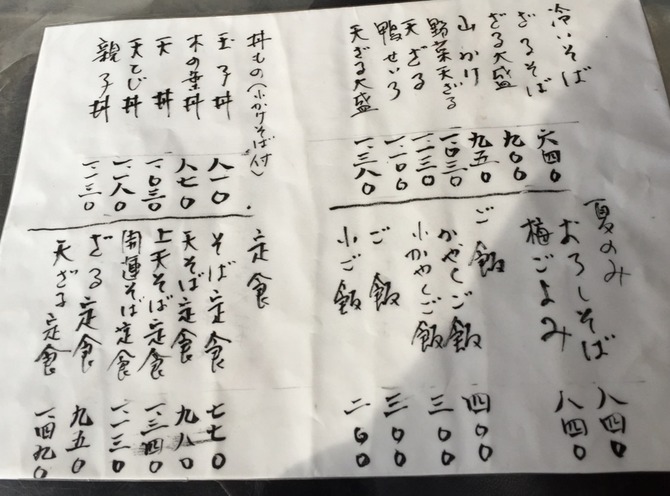 冷いそば
ざるそば 六四〇
ざる大盛 九〇〇
山かけ 九五〇
野菜天ざる 一、〇三〇
天ざる 一、一三〇
鴨せいろ 一、一〇〇
天ざる大盛 一、三八〇
夏のみ
おろしそば 八四〇
梅ごよみ 八四〇
ご飯
かやくご飯 四〇〇
小かやくご飯 三〇〇
ご飯 三〇〇
小ご飯 二〇〇
丼もの(小かけそば付)
玉子丼 八一〇
木の葉丼 八七〇
天丼 一、〇三〇
天とじ丼 一、一八〇
親子丼 一、一三〇
定食
そば定食 七七〇
天そば定食 九八〇
上天そば定食 一、三四〇
開運そば定食 一、一三〇
ざる定食 九五〇
天ざる定食 一、四九〇